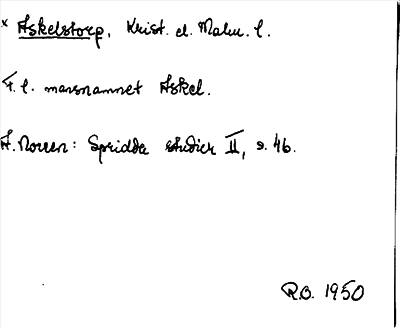 × Askelstorp, Krist. el. Malm. l.
F.l. mansnamnet Askel.
A. Noreen: Spridda studier II, s. 46.
R.O. 1950